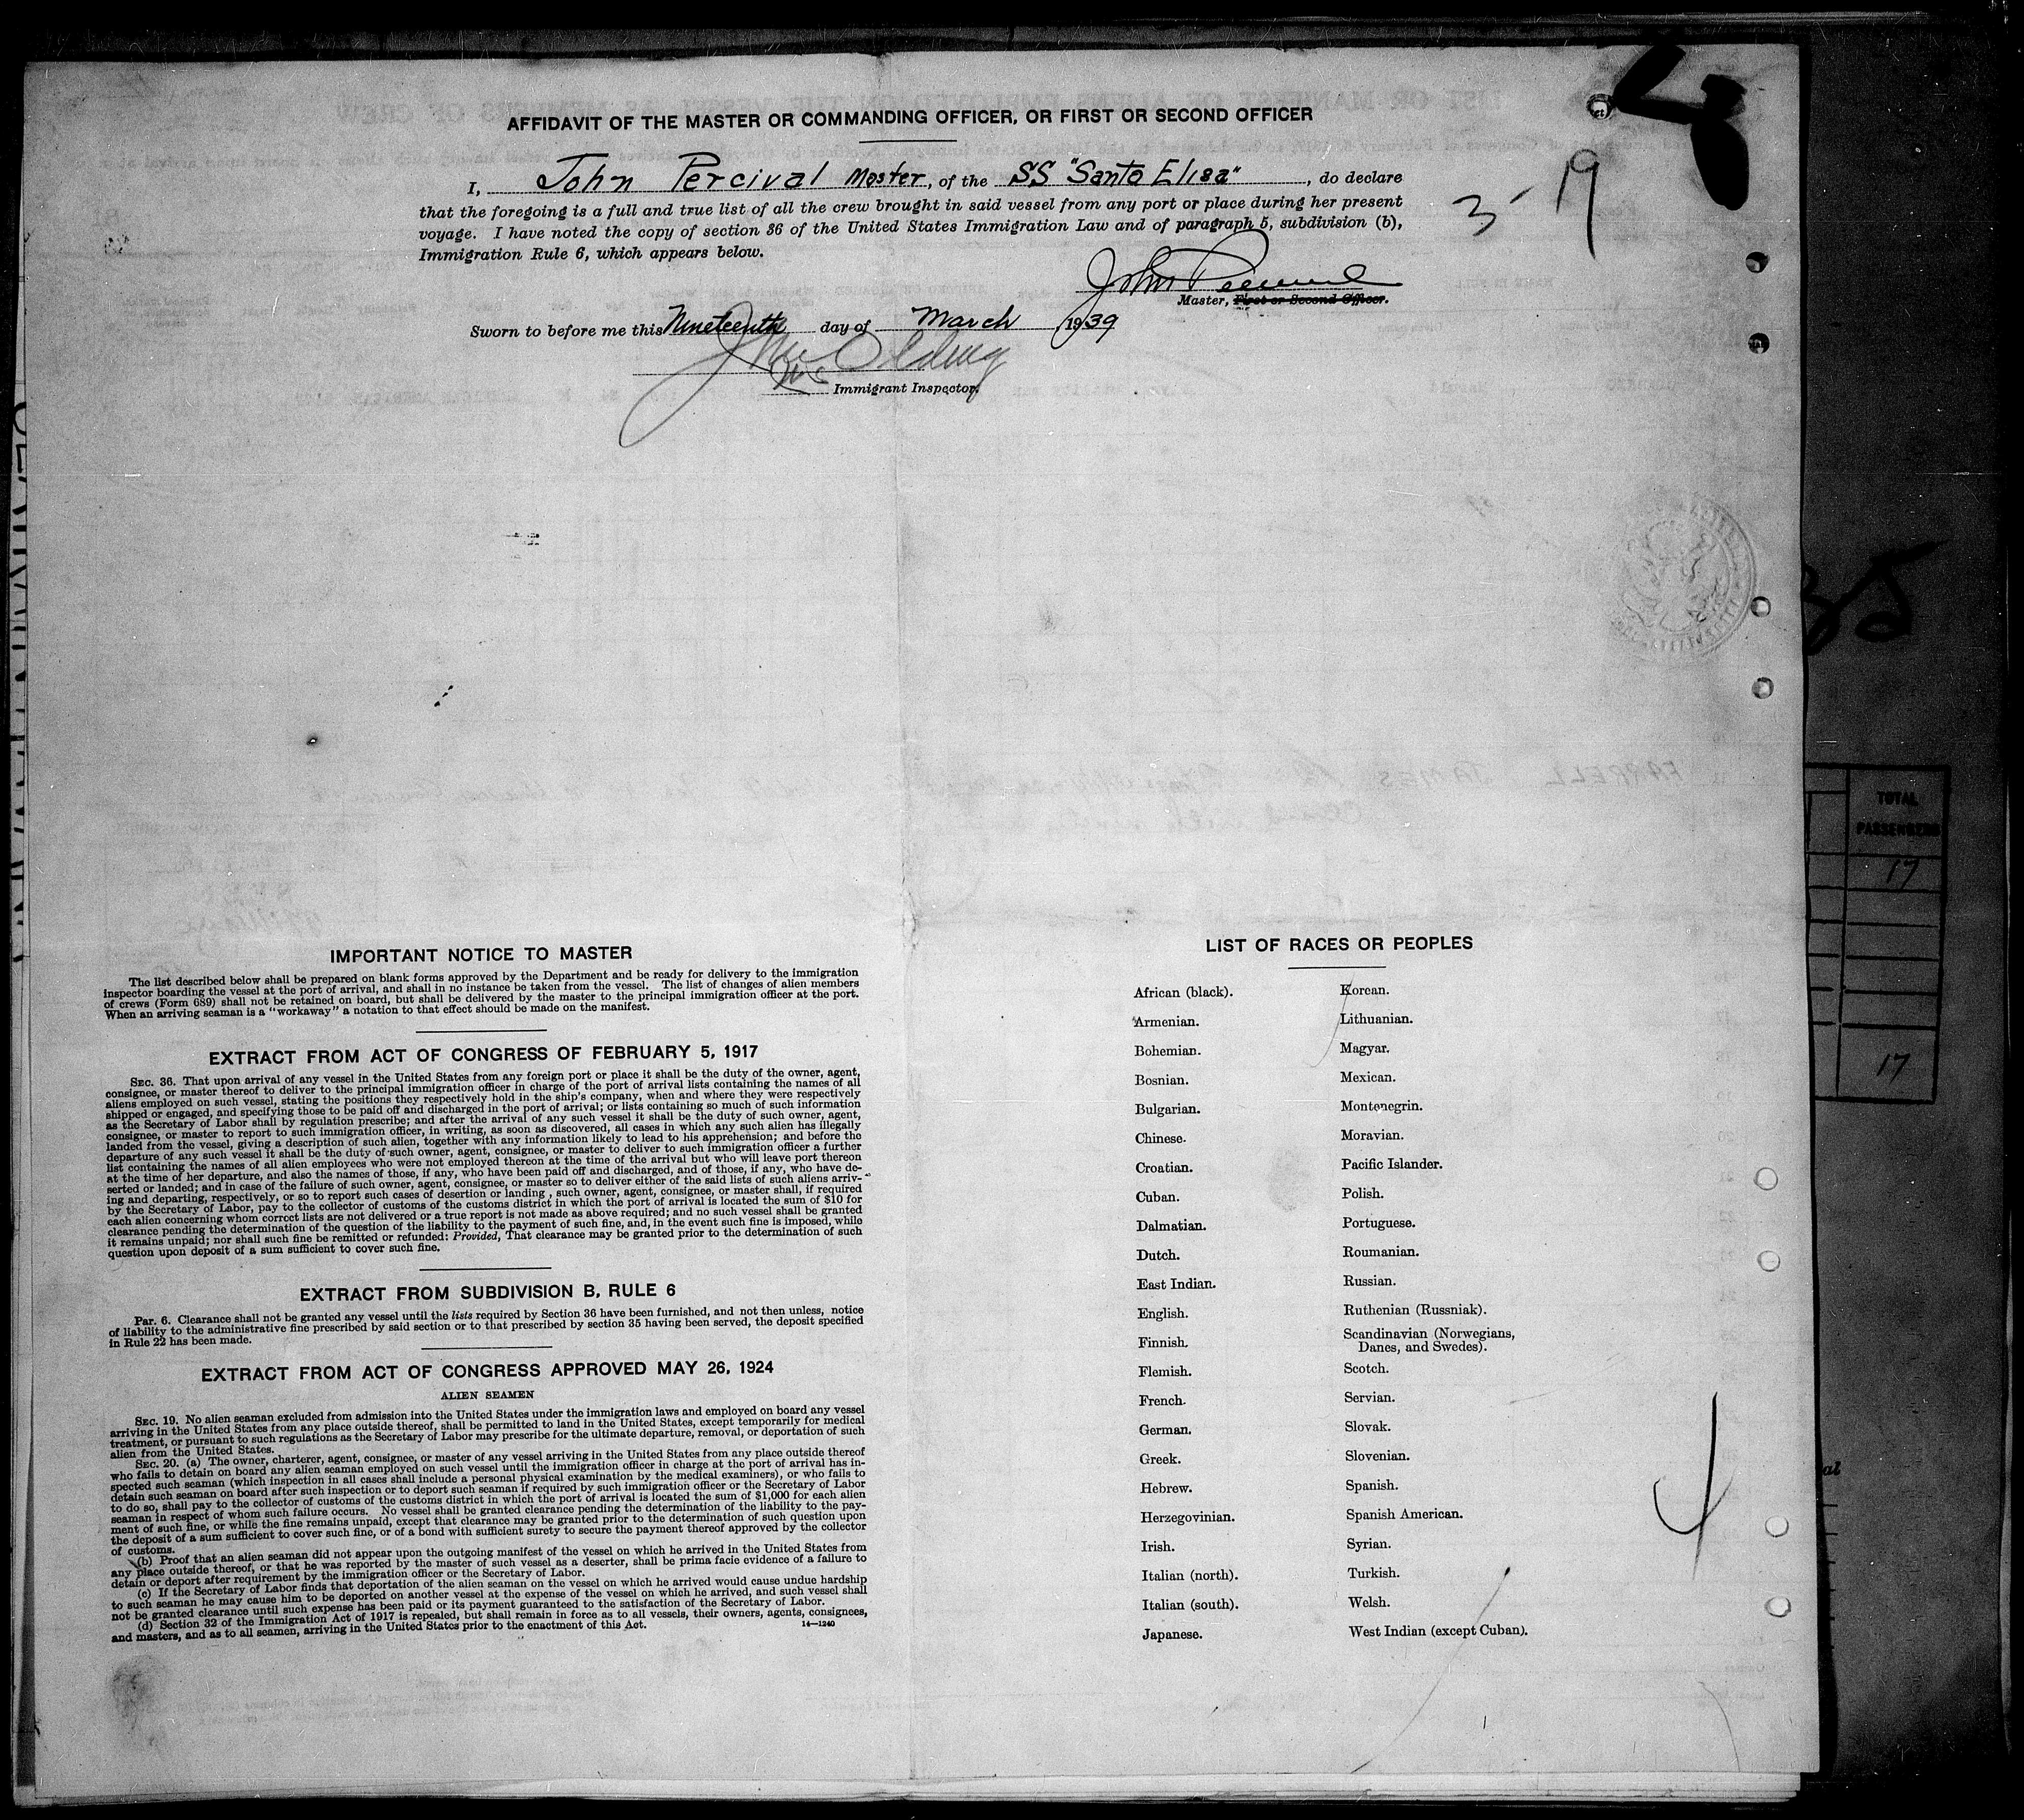 AFFIDAVIT OF THE MASTER OR COMMANDING OFFICER, OR FIRST OR SECOND OFFICER
I, John Percival Master, of the SS "Santa Elisa", do declare
that the foregoing is a full and true list of all the crew brought in said vessel from any port or place during her present
voyage. I have noted the copy of section 36 of the United States Immigration Law and of paragraph 5, subdivision (b),
Immigration Rule 6, which appears below.
3-19
John Percival
Master, First or Second Officer.
Sworn to before me this Nineteenth day of March 1939
Immigrant Inspector.
35
TOTAL
PASSENGERS
17
17
IMPORTANT NOTICE TO MASTER
The list described below shall be prepared on blank forms approved by the Department and be ready for delivery to the immigration
inspector boarding the vessel at the port of arrival, and shall in no instance be taken from the vessel. The list of changes of alien members
of crews (Form 689) shall not be retained on board, but shall be delivered by the master to the principal immigration officer at the port.
When an arriving seaman is a "workaway" a notation to that effect should be made on the manifest.
EXTRACT FROM ACT OF CONGRESS OF FEBRUARY 5, 1917
SEC. 36. That upon arrival of any vessel in the United States from any foreign port or place it shall be the duty of the owner, agent,
consignee, or master thereof to deliver to the principal immigration officer in charge of the port of arrival lists containing the names of all
aliens employed on such vessel, stating the positions they respectively hold in the ship's company, when and where they were respectively
shipped or engaged, and specifying those to be paid off and discharged in the port of arrival; or lists containing so much of such information
as the Secretary of Labor shall by regulation prescribe; and after the arrival of any such vessel it shall be the duty of such owner, agent,
consignee, or master to report to such immigration officer, in writing, as soon as discovered, all cases in which any such alien has illegally
landed from the vessel, giving a description of such alien, together with any information likely to lead to his apprehension; and before the
departure of any such vessel it shall be the duty of such owner, agent, consignee, or master to deliver to such immigration officer a further
list containing the names of all alien employees who were not employed thereon at the time of the arrival but who will leave port thereon
at the time of her departure, and also the names of those, if any, who have been paid off and discharged, and of those, if any, who have de-
serted or landed; and in case of the failure of such owner, agent, consignee, or master so to deliver either of the said lists of such aliens arriv-
ing and departing, respectively, or so to report such cases of desertion or landing, such owner, agent, consignee, or master shall, if required
by the Secretary of Labor, pay to the collector of customs of the customs district in which the port of arrival is located the sum of $10 for
each alien concerning whom correct lists are not delivered or a true report is not made as above required; and no such vessel shall be granted
clearance pending the determination of the question of the liability to the payment of such fine, and, in the event such fine is imposed, while
it remains unpaid; nor shall such fine be remitted or refunded: Provided, That clearance may be granted prior to the determination of such
question upon deposit of a sum sufficient to cover such fine.
EXTRACT FROM SUBDIVISION B, RULE 6
Par. 6. Clearance shall not be granted any vessel until the lists required by Section 36 have been furnished, and not then unless, notice
of liability to the administrative fine prescribed by said section or to that prescribed by section 35 having been served, the deposit specified
in Rule 22 has been made.
EXTRACT FROM ACT OF CONGRESS APPROVED MAY 26, 1924
ALIEN SEAMEN
SEC. 19. No alien seaman excluded from admission into the United States under the immigration laws and employed on board any vessel
arriving in the United States from any place outside thereof, shall be permitted to land in the United States, except temporarily for medical
treatment, or pursuant to such regulations as the Secretary of Labor may prescribe for the ultimate departure, removal, or deportation of such
alien from the United States.
SEC. 20. (a) The owner, charterer, agent, consignee, or master of any vessel arriving in the United States from any place outside thereof
who fails to detain on board any alien seaman employed on such vessel until the immigration officer in charge at the port of arrival has in-
spected such seaman (which inspection in all cases shall include a personal physical examination by the medical examiners), or who fails to
detain such seaman on board after such inspection or to deport such seaman if required by such immigration officer or the Secretary of Labor
to do so, shall pay to the collector of customs of the customs district in which the port of arrival is located the sum of $1,000 for each alien
seaman in respect of whom such failure occurs. No vessel shall be granted clearance pending the determination of the liability to the pay-
ment of such fine, or while the fine remains unpaid, except that clearance may be granted prior to the determination of such question upon
the deposit of a sum sufficient to cover such fine, or of a bond with sufficient surety to secure the payment thereof approved by the collector
of customs.
(b) Proof that an alien seaman did not appear upon the outgoing manifest of the vessel on which he arrived in the United States from
any place outside thereof, or that he was reported by the master of such vessel as a deserter, shall be prima facie evidence of a failure to
detain or deport after requirement by the immigration officer or the Secretary of Labor.
(c) If the Secretary of Labor finds that deportation of the alien seaman on the vessel on which he arrived would cause undue hardship
to such seaman he may cause him to be deported on another vessel at the expense of the vessel on which he arrived, and such vessel shall
not be granted clearance until such expense has been paid or its payment guaranteed to the satisfaction of the Secretary of Labor.
(d) Section 32 of the Immigration Act of 1917 is repealed, but shall remain in force as to all vessels, their owners, agents, consignees,
and masters, and as to all seamen, arriving in the United States prior to the enactment of this Act.
14—1240
LIST OF RACES OR PEOPLES
African (black).
Armenian.
Bohemian.
Bosnian.
Bulgarian.
Chinese.
Croatian.
Cuban.
Dalmatian.
Dutch.
East Indian.
English.
Finnish.
Flemish.
French.
German.
Greek.
Hebrew.
Herzegovinian.
Irish.
Italian (north).
Italian (south).
Japanese.
Korean.
Lithuanian.
Magyar.
Mexican.
Montenegrin.
Moravian.
Pacific Islander.
Polish.
Portuguese.
Roumanian.
Russian.
Ruthenian (Russniak).
Scandinavian (Norwegians,
Danes, and Swedes).
Scotch.
Servian.
Slovak.
Slovenian.
Spanish.
Spanish American.
Syrian.
Turkish.
Welsh.
West Indian (except Cuban).